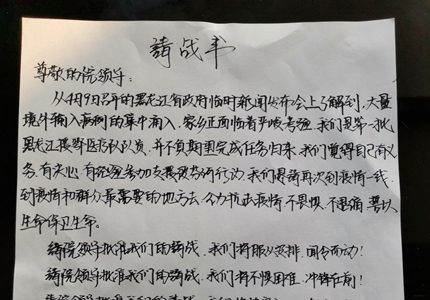 请战书
尊敬的院领导:
从4月9日召开的黑龙江省政府临时新闻发布会上了解到,大量
境外输入病例的集中涌入,家乡正面临着严峻考验。我们是第一批
黑龙江援鄂医疗队队员,并不负期望完成任务归来,我们觉得自己有义
务、有决心、有经验参加支援绥芬河行动。我们愿请再次到疫情一线,
到疫情和群众最需要的地方去,全力抗击疫情,不畏惧、不退缩,誓以
生命保卫生命。
请院领导批准我们的请战,我们将服从安排,闻令而动!
请院领导批准我们的请战,我们将不惧困难,冲锋在前!
请院领导批准我们的请战,我们将